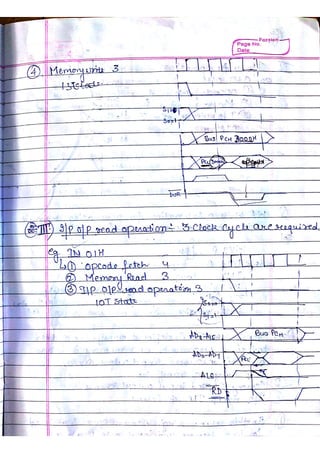 Page No.
Date
④ Memory write 3
Bus PCH 3000H
WR
III) I/P O/P read operation:- 3 Clock Cycle are required
eg IN 01H
① opcode fetch 4
② Memory Read 3
③ I/P O/P read operation 3
IOT State
Bus PCH
AD0-AD7
ALE
RD